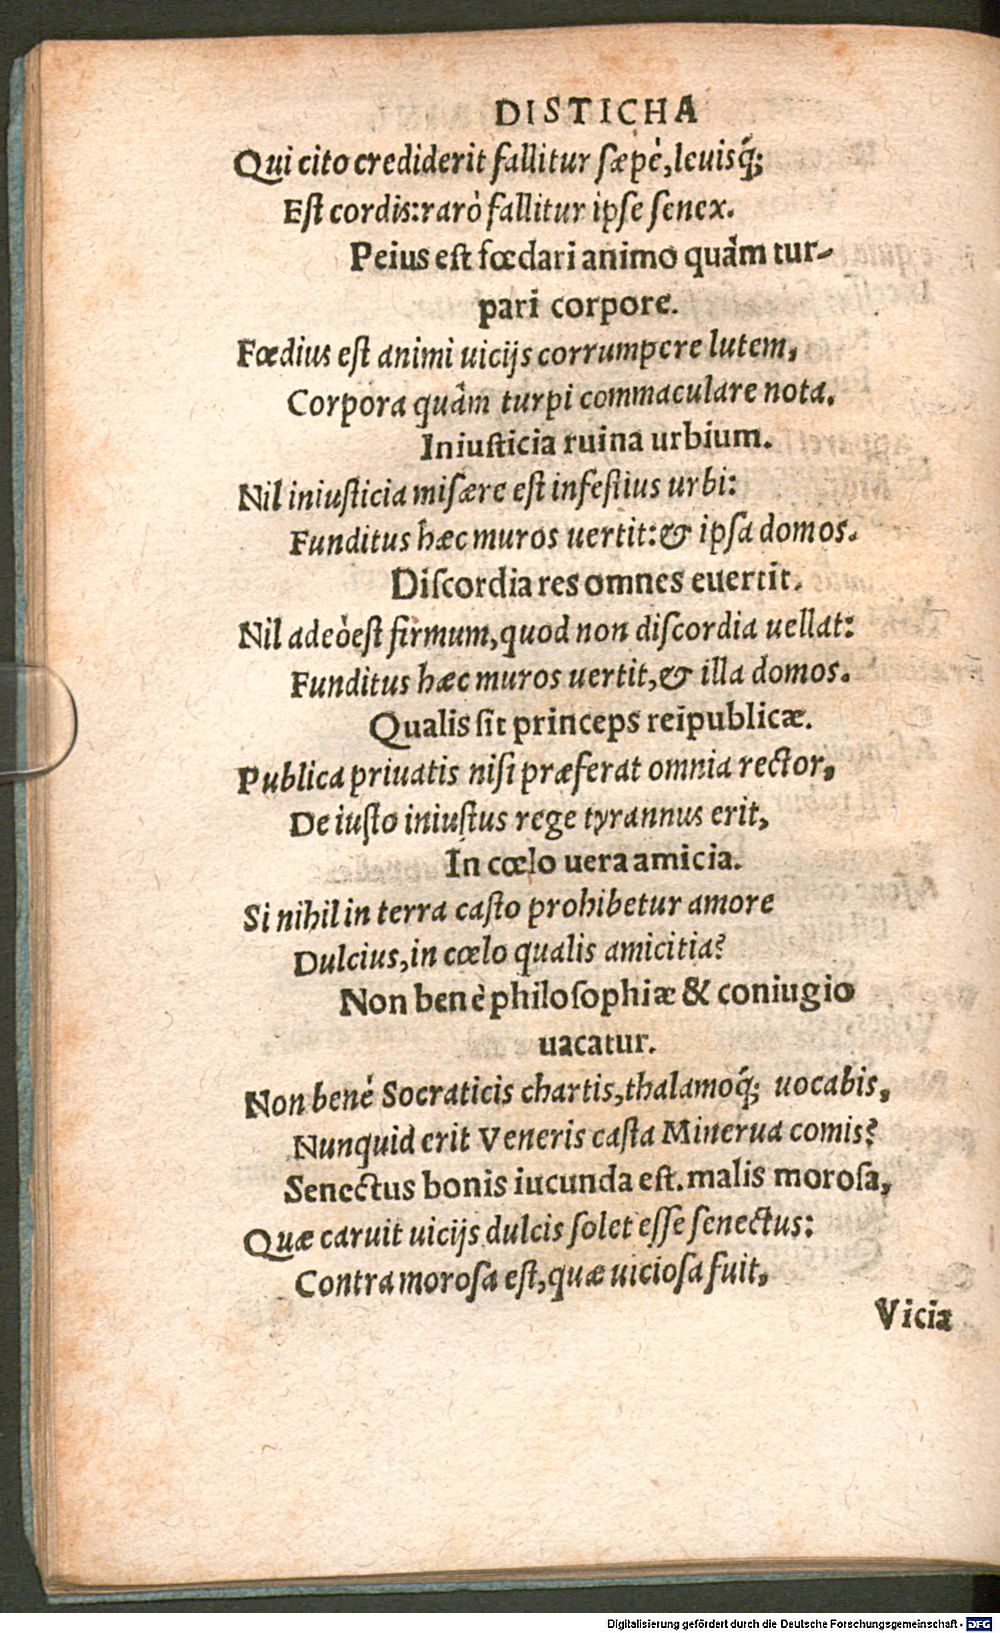 DISTICHA
Qui cito crediderit fallitur sæpè, leuisq́;
Est cordis: rarò fallitur ipse senex.
Peius est fœdari animo quàm tur-
pari corpore.
Fœdius est animi uicijs corrumpere lutem,
Corpora quàm turpi commaculare nota.
Iniusticia ruina urbium.
Nil iniusticia misære est infestius urbi:
Funditus hæc muros uertit: & ipsa domos.
Discordia res omnes euertit.
Nil adeò est firmum, quod non discordia uellat:
Funditus hæc muros uertit, & illa domos.
Qualis sit princeps reipublicæ.
Publica priuatis nisi præferat omnia rector,
De iusto iniustus rege tyrannus erit,
In cœlo uera amicia.
Si nihil in terra casto prohibetur amore
Dulcius, in cœlo qualis amicitia?
Non benè philosophiæ & coniugio
uacatur.
Non benè Socraticis chartis, thalamoq́; uocabis,
Nunquid erit Veneris casta Minerua comis?
Senectus bonis iucunda est. malis morosa,
Quæ caruit uicijs dulcis solet esse senectus:
Contra morosa est, quæ uiciosa fuit,
Vicia
Digitalisierung gefördert durch die Deutsche Forschungsgemeinschaft - DFG